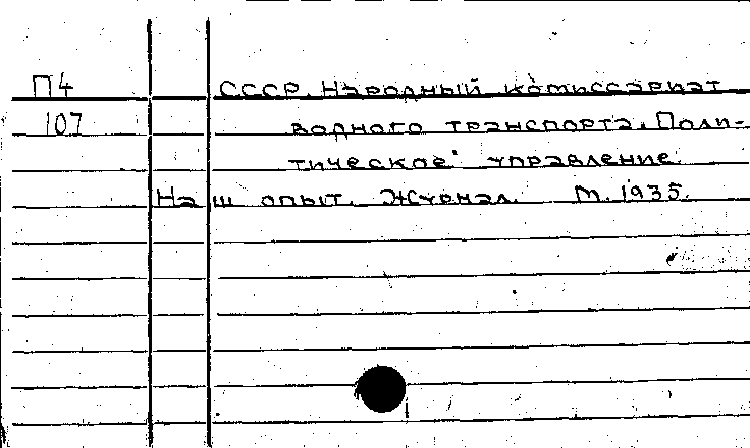 П4 СССР. Народный комиссариат
107 водного транспорта. Поли-
тическое управление.
Наш опыт. Журнал. М. 1935.